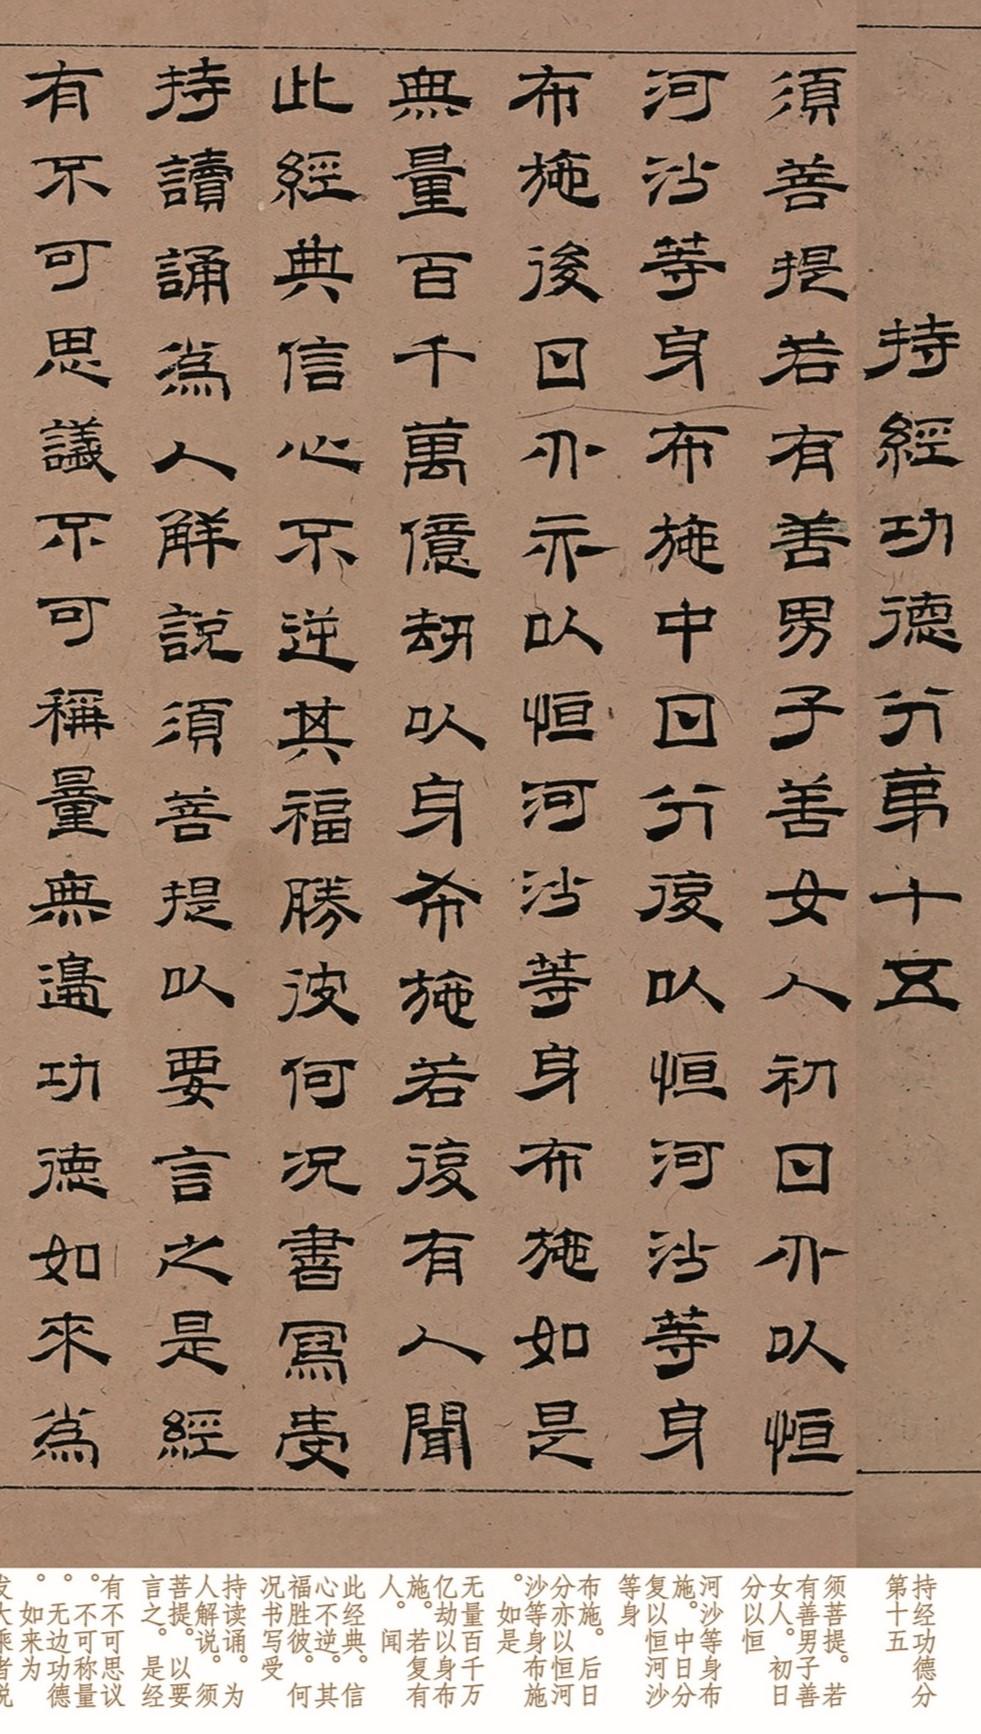 持經功德分第十五
須菩提若有善男子善女人初日分以恒
河沙等身布施中日分復以恒河沙等身
布施後日分亦以恒河沙等身布施如是
無量百千萬億劫以身布施若復有人聞
此經典信心不逆其福勝彼何況書寫受
持讀誦為人解說須菩提以要言之是經
有不可思議不可稱量無邊功德如來為
持经功德分
第十五
须菩提。若
有善男子善
女人。初日
分以恒
河沙等身布
施。中日分
复以恒河沙
等身
布施。后日
分亦以恒河
沙等身布施
。如是
无量百千万
亿劫以身布
施。若复有
人。闻
此经典。信
心不逆。其
福胜彼。何
况书写受
持读诵。为
人解说。须
菩提。以要
言之。是经
有不可思议
。不可称量
。无边功德
。如来为
发大乘者说